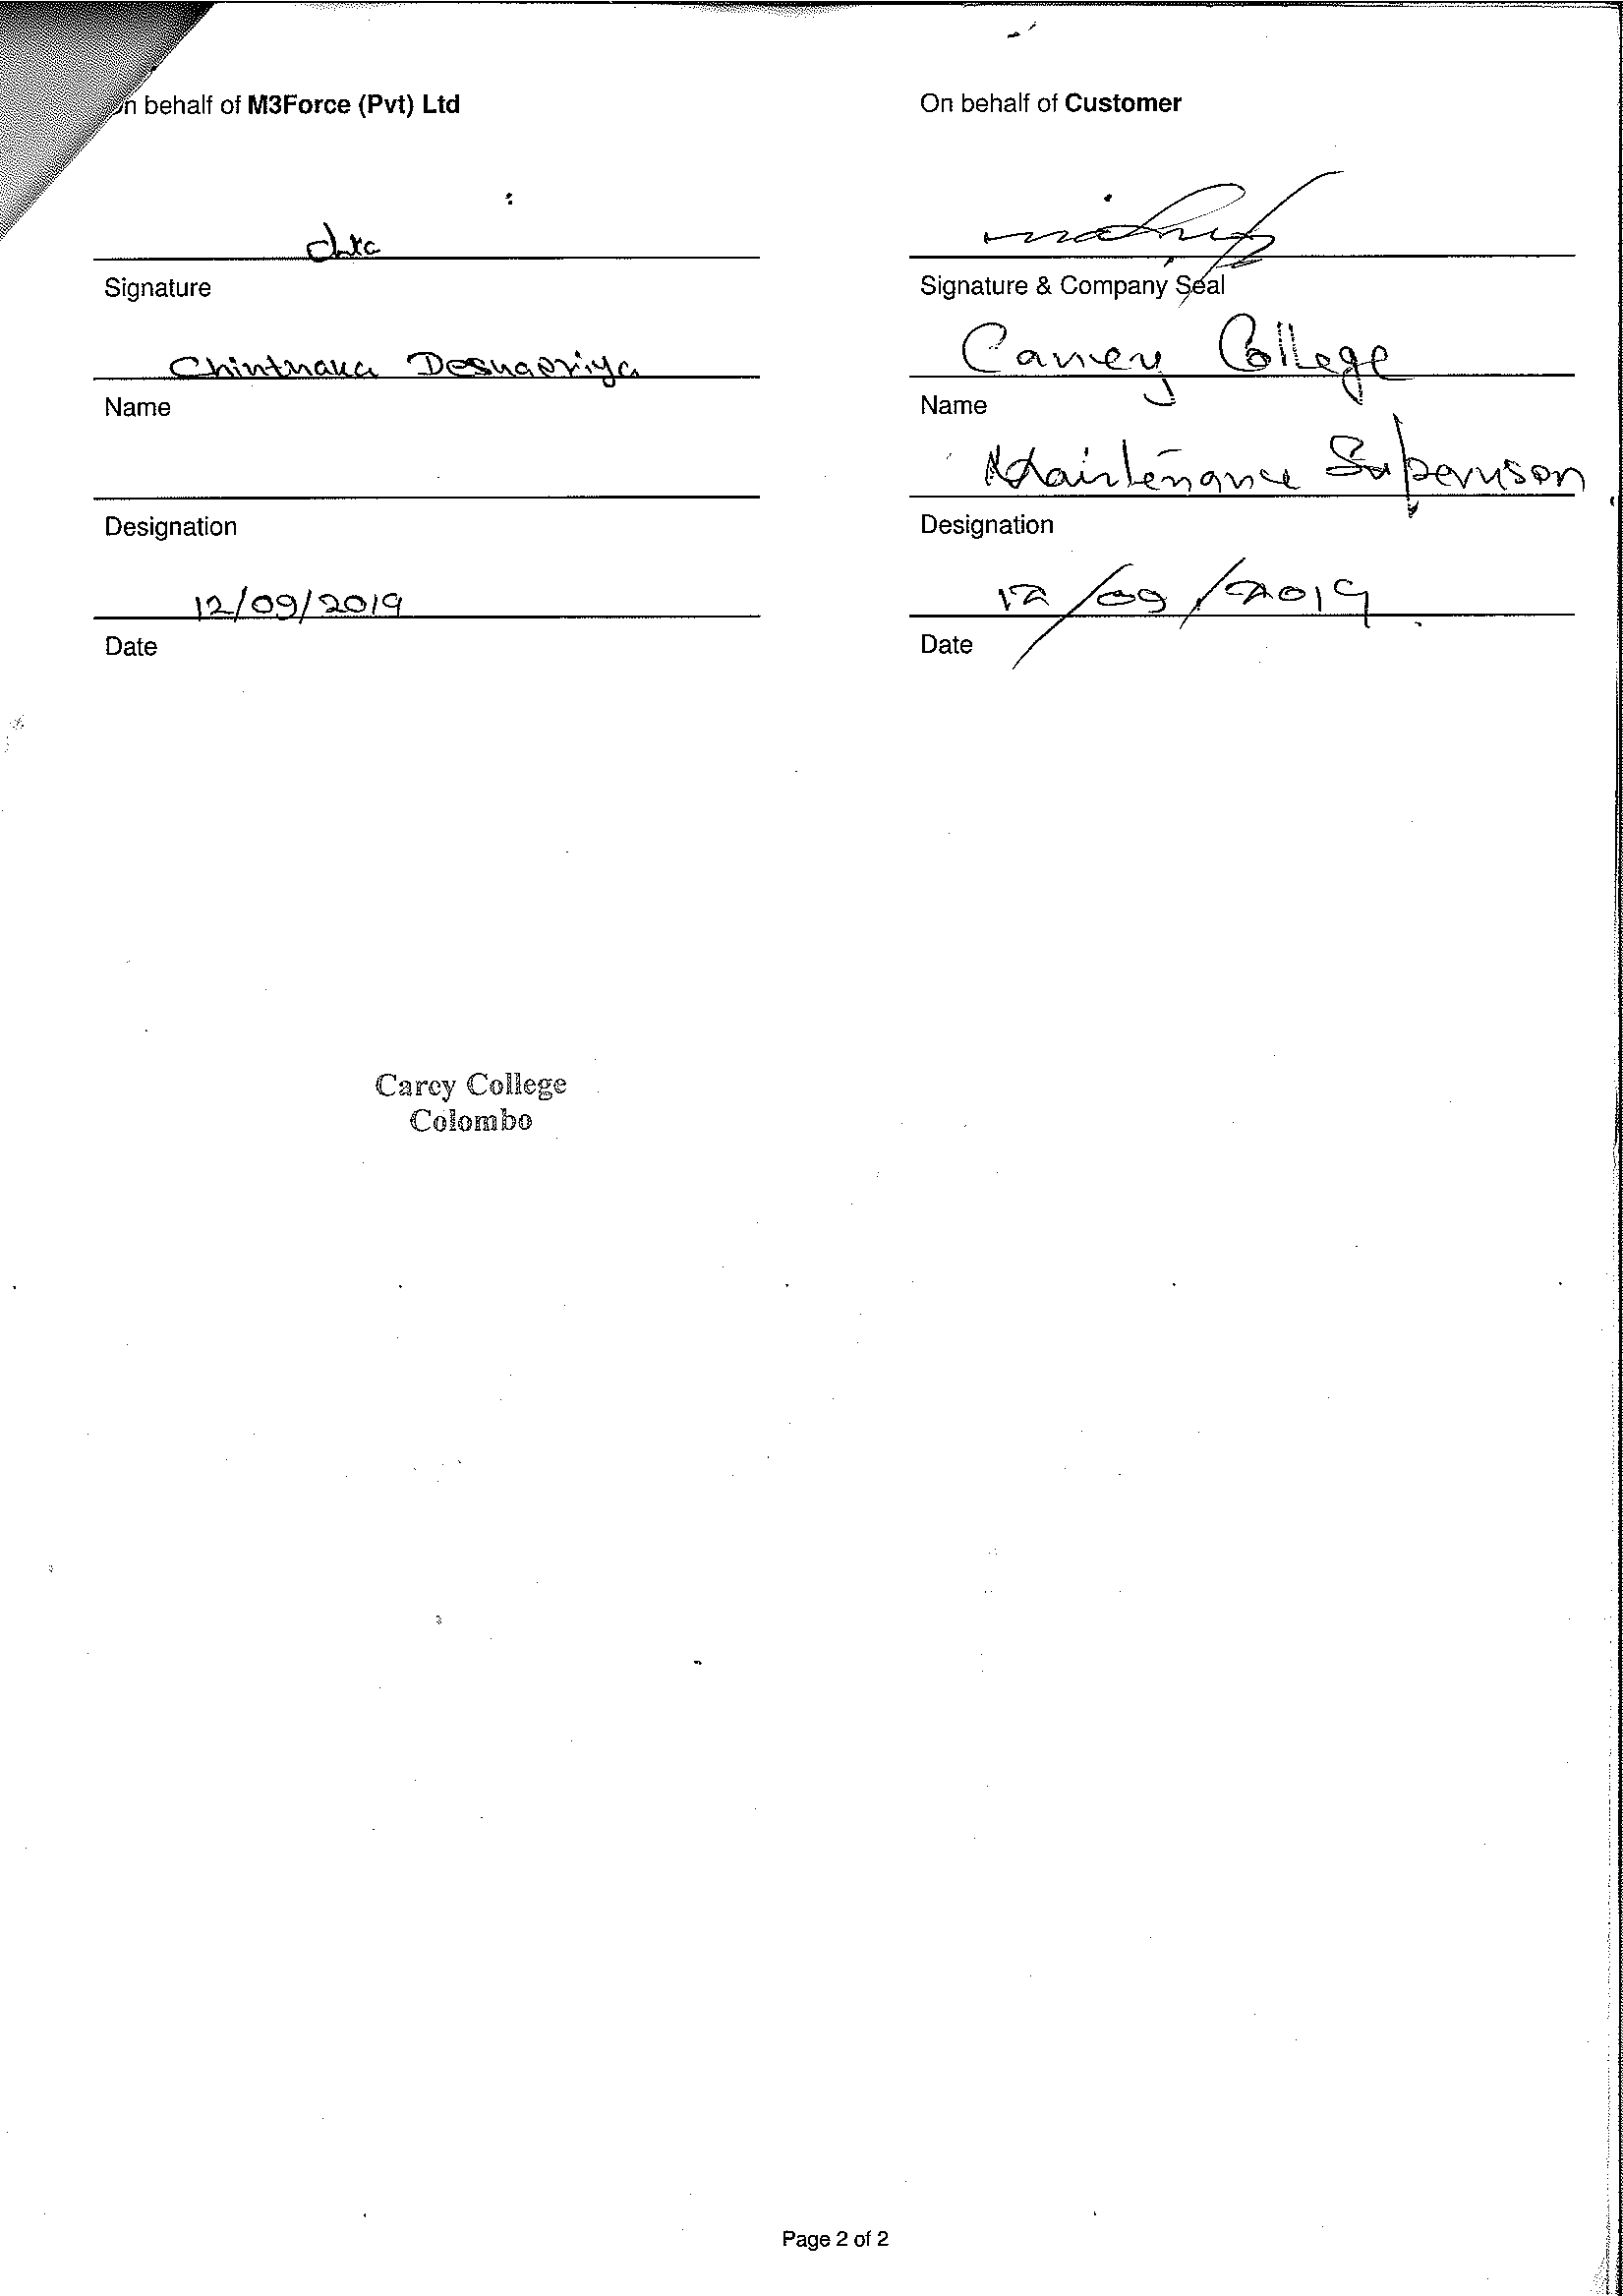 On behalf of M3Force (Pvt) Ltd
Signature
Chinthaka Deshapriya
Name
Designation
12/09/2019
Date
On behalf of Customer
Signature & Company Seal
Carey College
Name
Maintenance Supervisor
Designation
12/09/2019
Date
Carey College
Colombo
Page 2 of 2